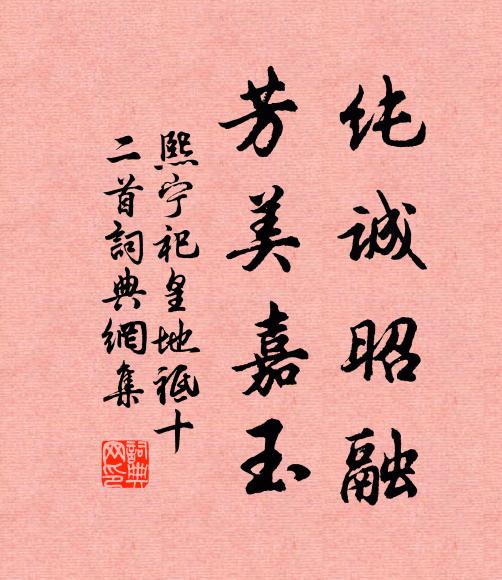 纯诚昭融
芳美嘉玉
熙宁祀皇地祇十
二首詞典網集
詞典网印